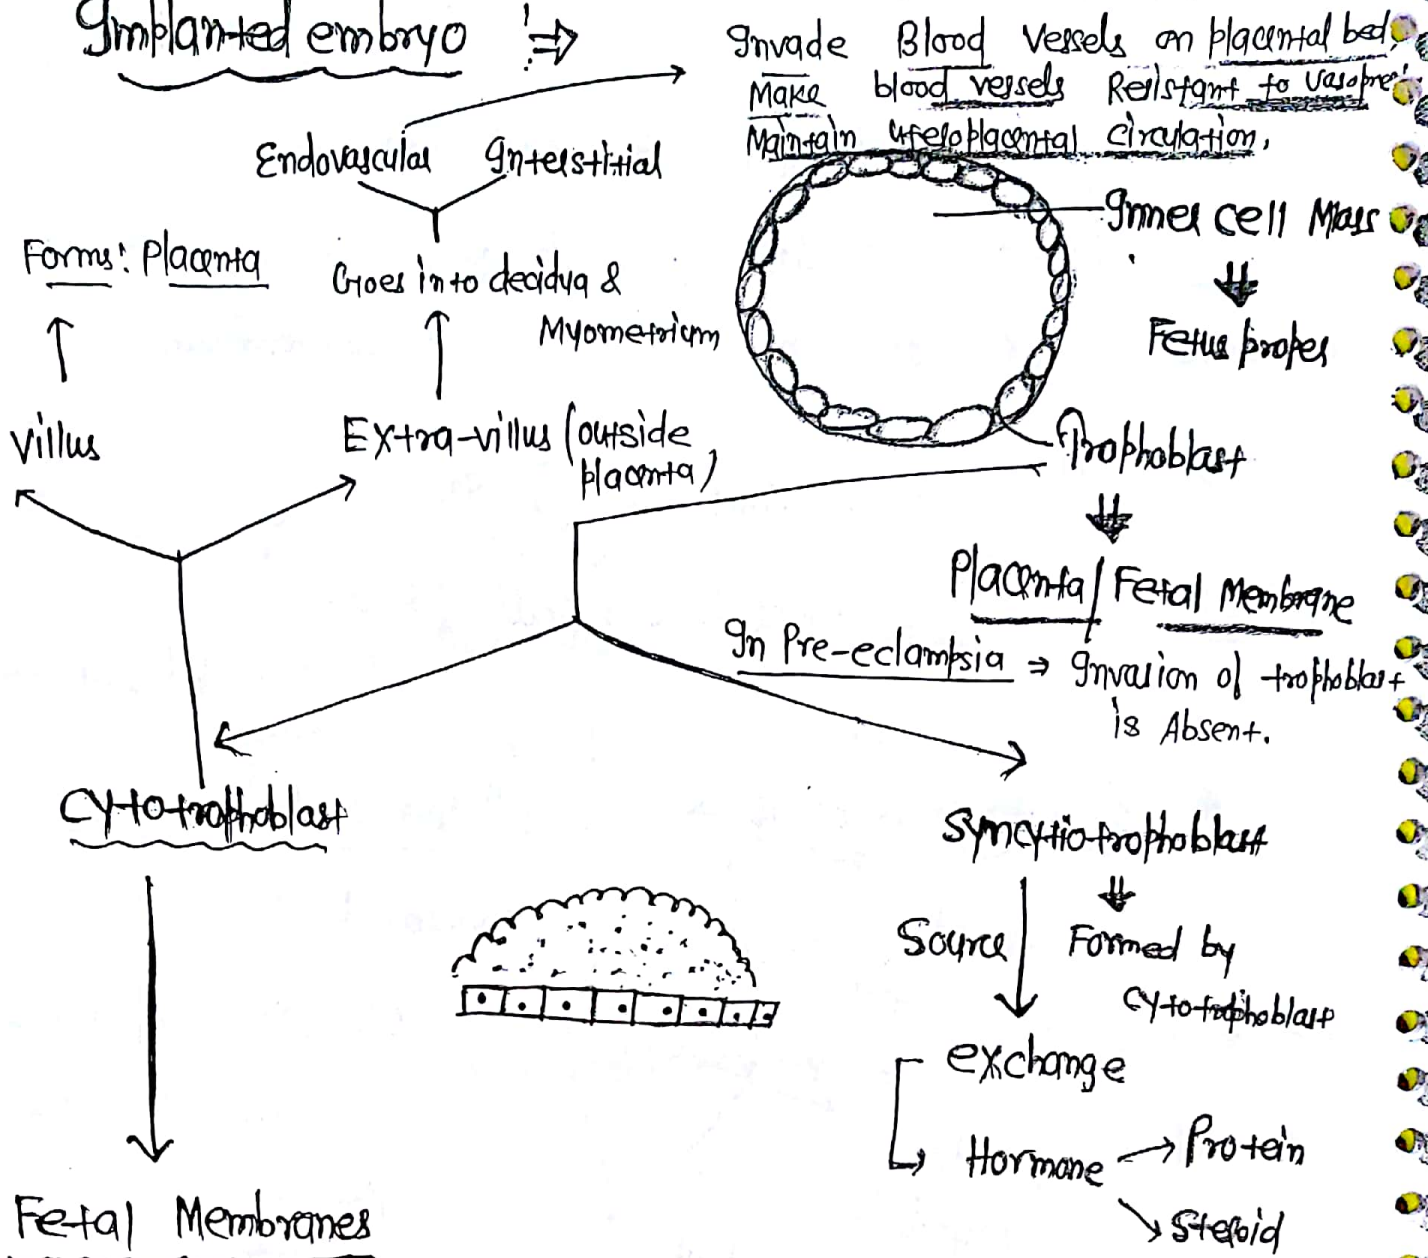 Implanted embryo :⇒
Invade Blood Vessels on placental bed,
Make blood vessels Resistant to vasopre
Maintain uteroplacental circulation.
Endovascular Interstitial
Inner cell Mass
Forms: Placenta
Goes into decidua &
Myometrium
Fetus proper
Villus
Extra-villus (outside
placenta)
Trophoblast
Placenta/Fetal Membrane
In Pre-eclampsia ⇒ Invasion of trophoblast
is Absent.
Cytotrophoblast
Syncytiotrophoblast
Source
Formed by
Cytotrophoblast
exchange
Hormone → Protein
Steroid
Fetal Membranes